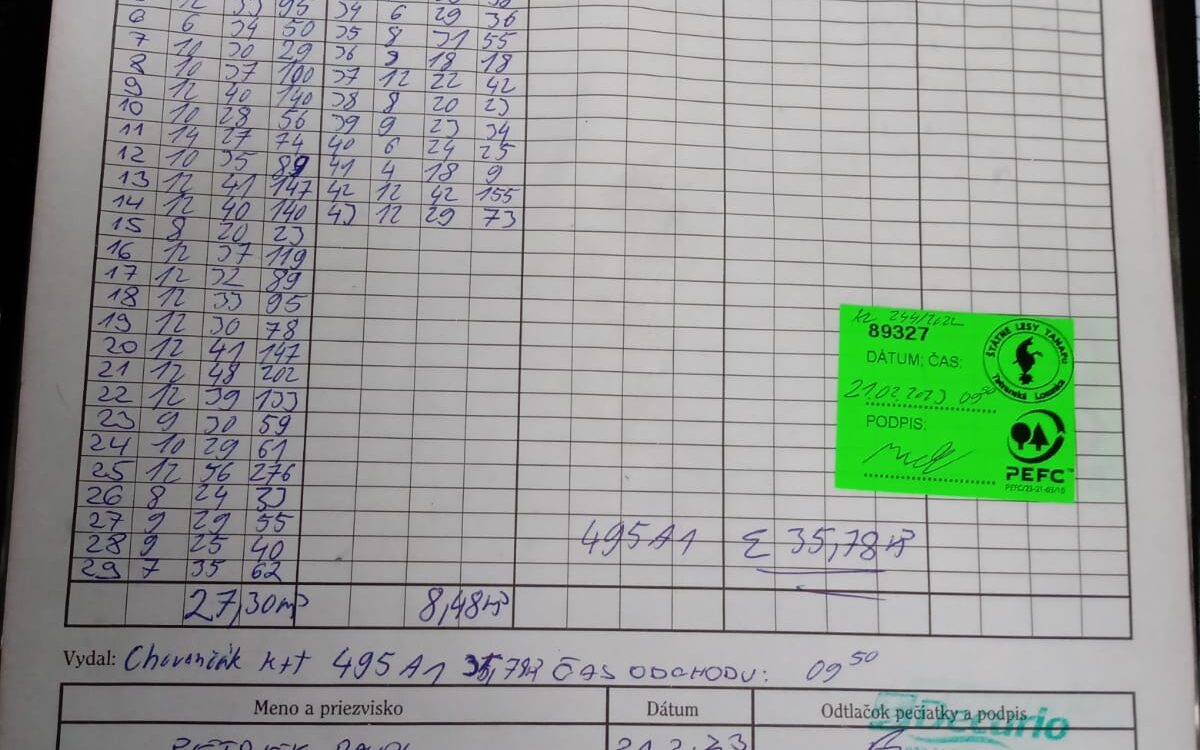 6 6 34 50 35 8 31 55
7 10 30 29 36 9 18 18
8 10 37 100 37 12 22 42
9 12 40 140 38 8 20 23
10 10 28 56 39 9 23 34
11 14 27 74 40 6 24 25
12 10 35 89 41 4 18 9
13 12 41 147 42 12 42 155
14 12 40 140 43 12 29 73
15 8 20 23
16 12 37 119
17 12 32 89
18 12 33 95
19 12 30 78
20 12 41 147
21 12 48 202
22 12 39 133
23 9 30 59
24 10 29 61
25 12 56 276
26 8 24 33
27 9 29 55
28 9 25 40
29 7 35 62
27,30m³ 8,48m³
495A1 Σ 35,78m³
244/2022
89327
DÁTUM; ČAS:
21.02.2023 09⁵⁰
PODPIS:
ŠTÁTNE LESY TANAPU
Tatranská Lomnica
PEFC™
PEFC/23-21-03/10
Vydal: 495A1 ČAS ODCHODU: 09⁵⁰
Meno a priezvisko Dátum Odtlačok pečiatky a podpis
21.2.23